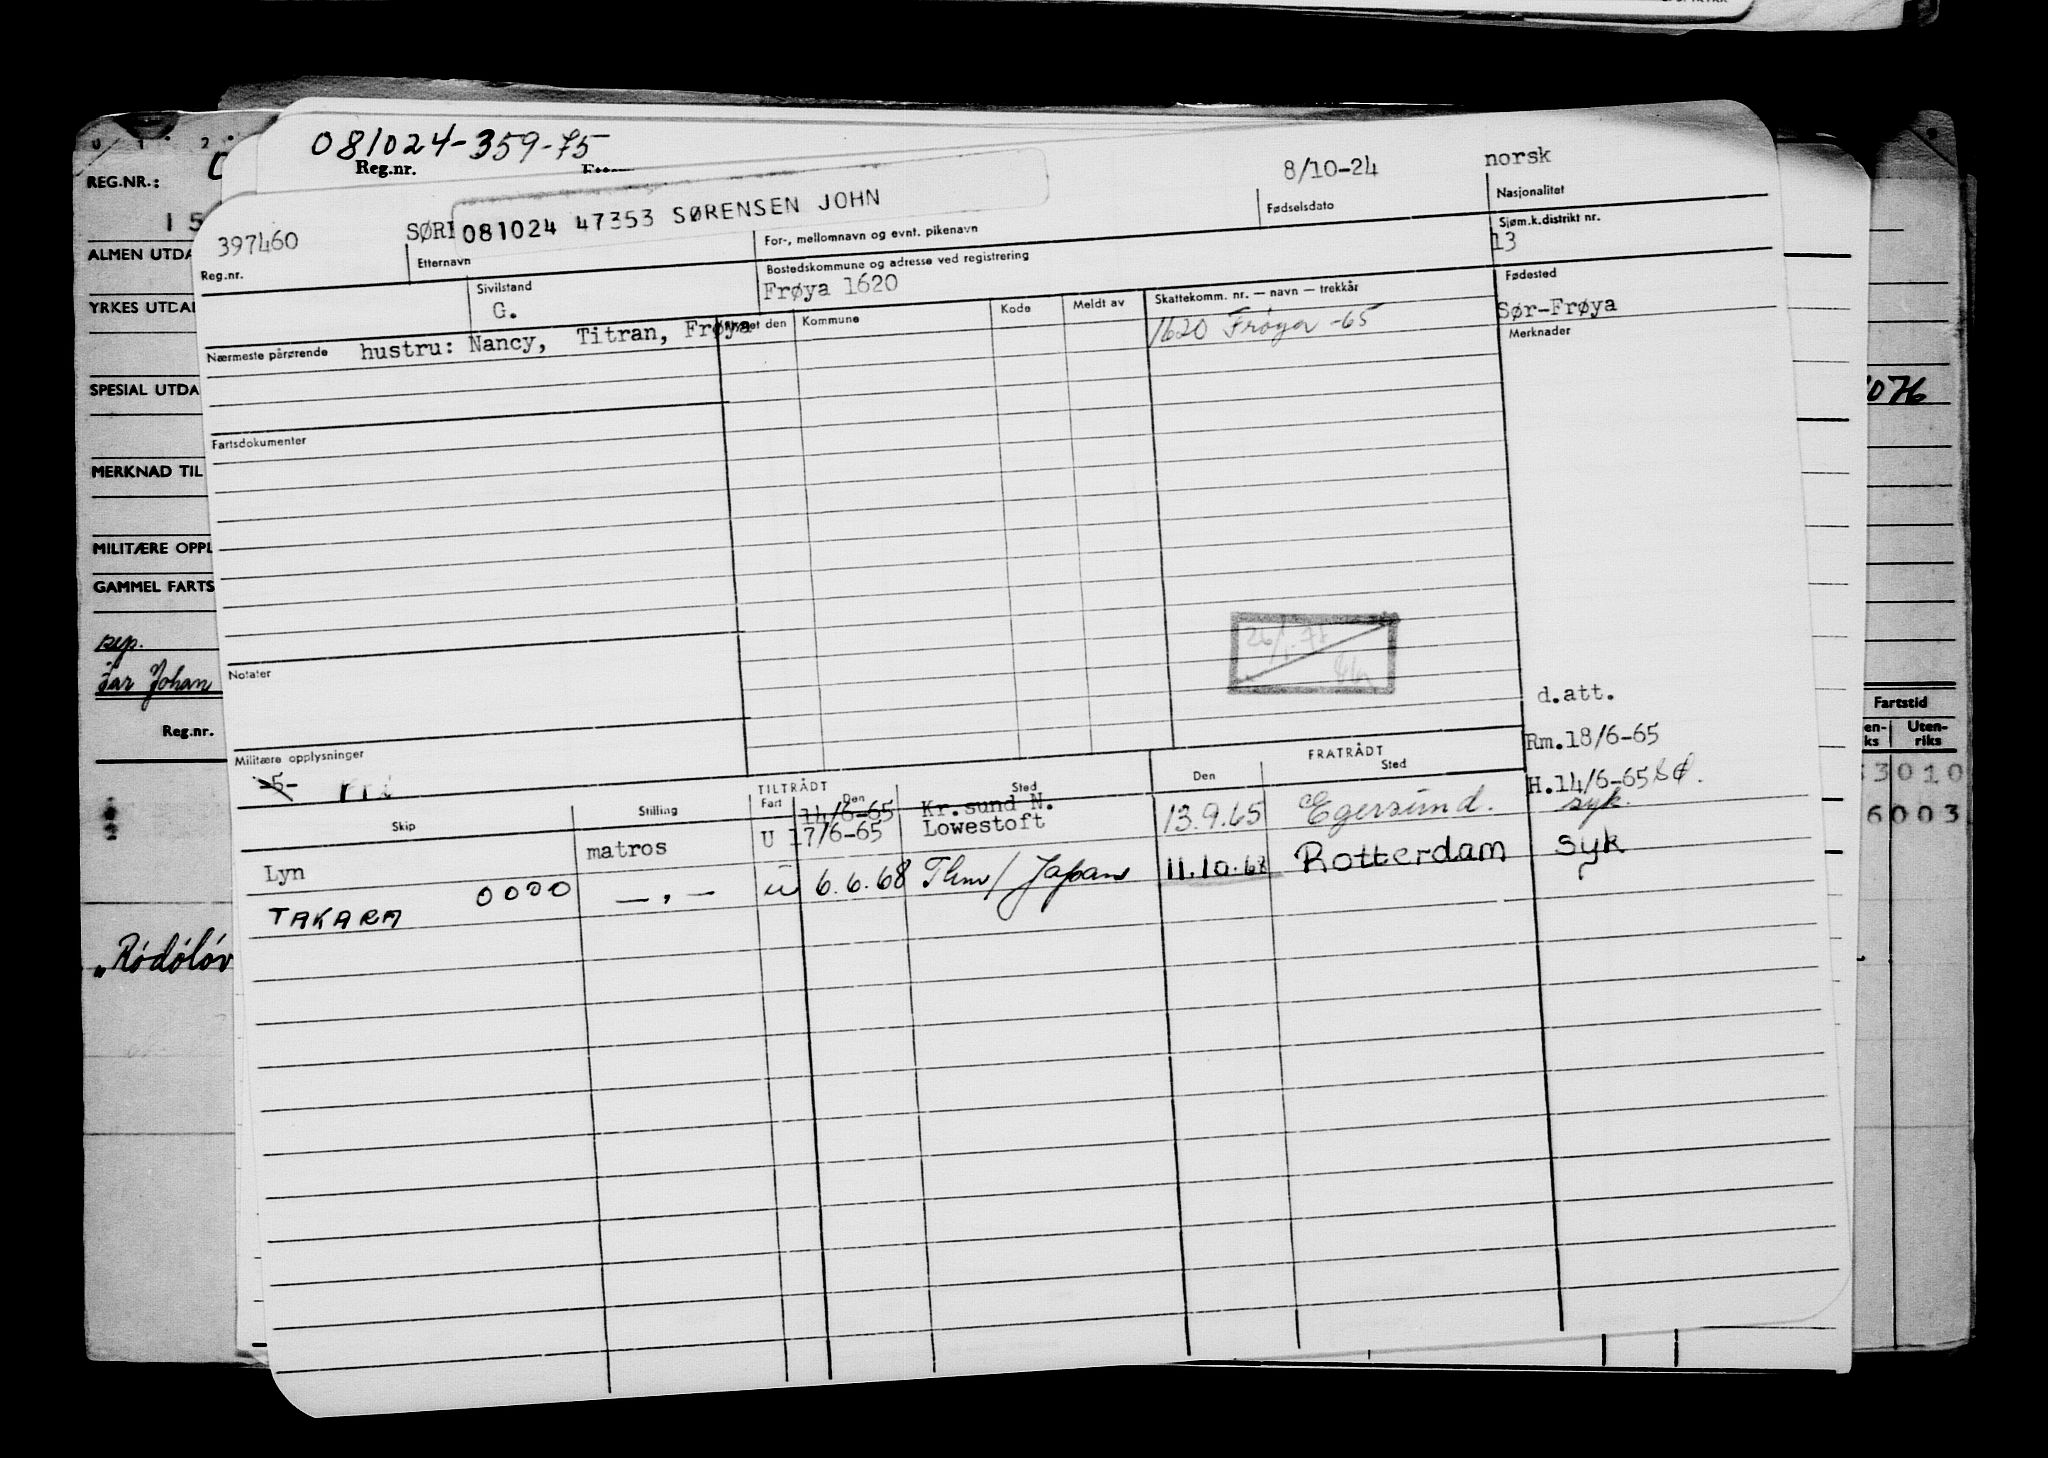 081024-359-75
REG.NR.:
Reg.nr.
8/10-24
norsk
Fødselsdato
Nasjonalitet
397460
081024 47353 SØRENSEN JOHN
Sjøm.k.distrikt nr.
13
Reg.nr.
Etternavn
For-, mellomnavn og evnt. pikenavn
Sivilstand
G.
Bostedskommune og adresse ved registrering
Frøya 1620
Fødested
Sør-Frøya
Nærmeste pårørende
hustru: Nancy, Titran, Frøya
Kommune
Kode
Meldt av
Skattekomm. nr. — navn — trekkår
1620 Frøya -65
Merknader
Fartsdokumenter
Notater
Militære opplysninger
d.att.
Rm.18/6-65
H.14/6-65
TILTRÅDT
FRATRÅDT
Skip
Stilling
Fart
Den
Sted
Den
Sted
14/6-65 Kr.sund N.
Lyn
matros
U 17/6-65 Lowestoft
13.9.65
Egersund.
syk.
TAKARA
0000
— , —
U 6.6.68
Japan
11.10.68
Rotterdam
syk
ALMEN UTDA
YRKES UTDA
SPESIAL UTDA
MERKNAD TIL
MILITÆRE OPPL
GAMMEL FARTS
Far Johan
Reg.nr.
Fartstid
Uten-
riks
3010
6003